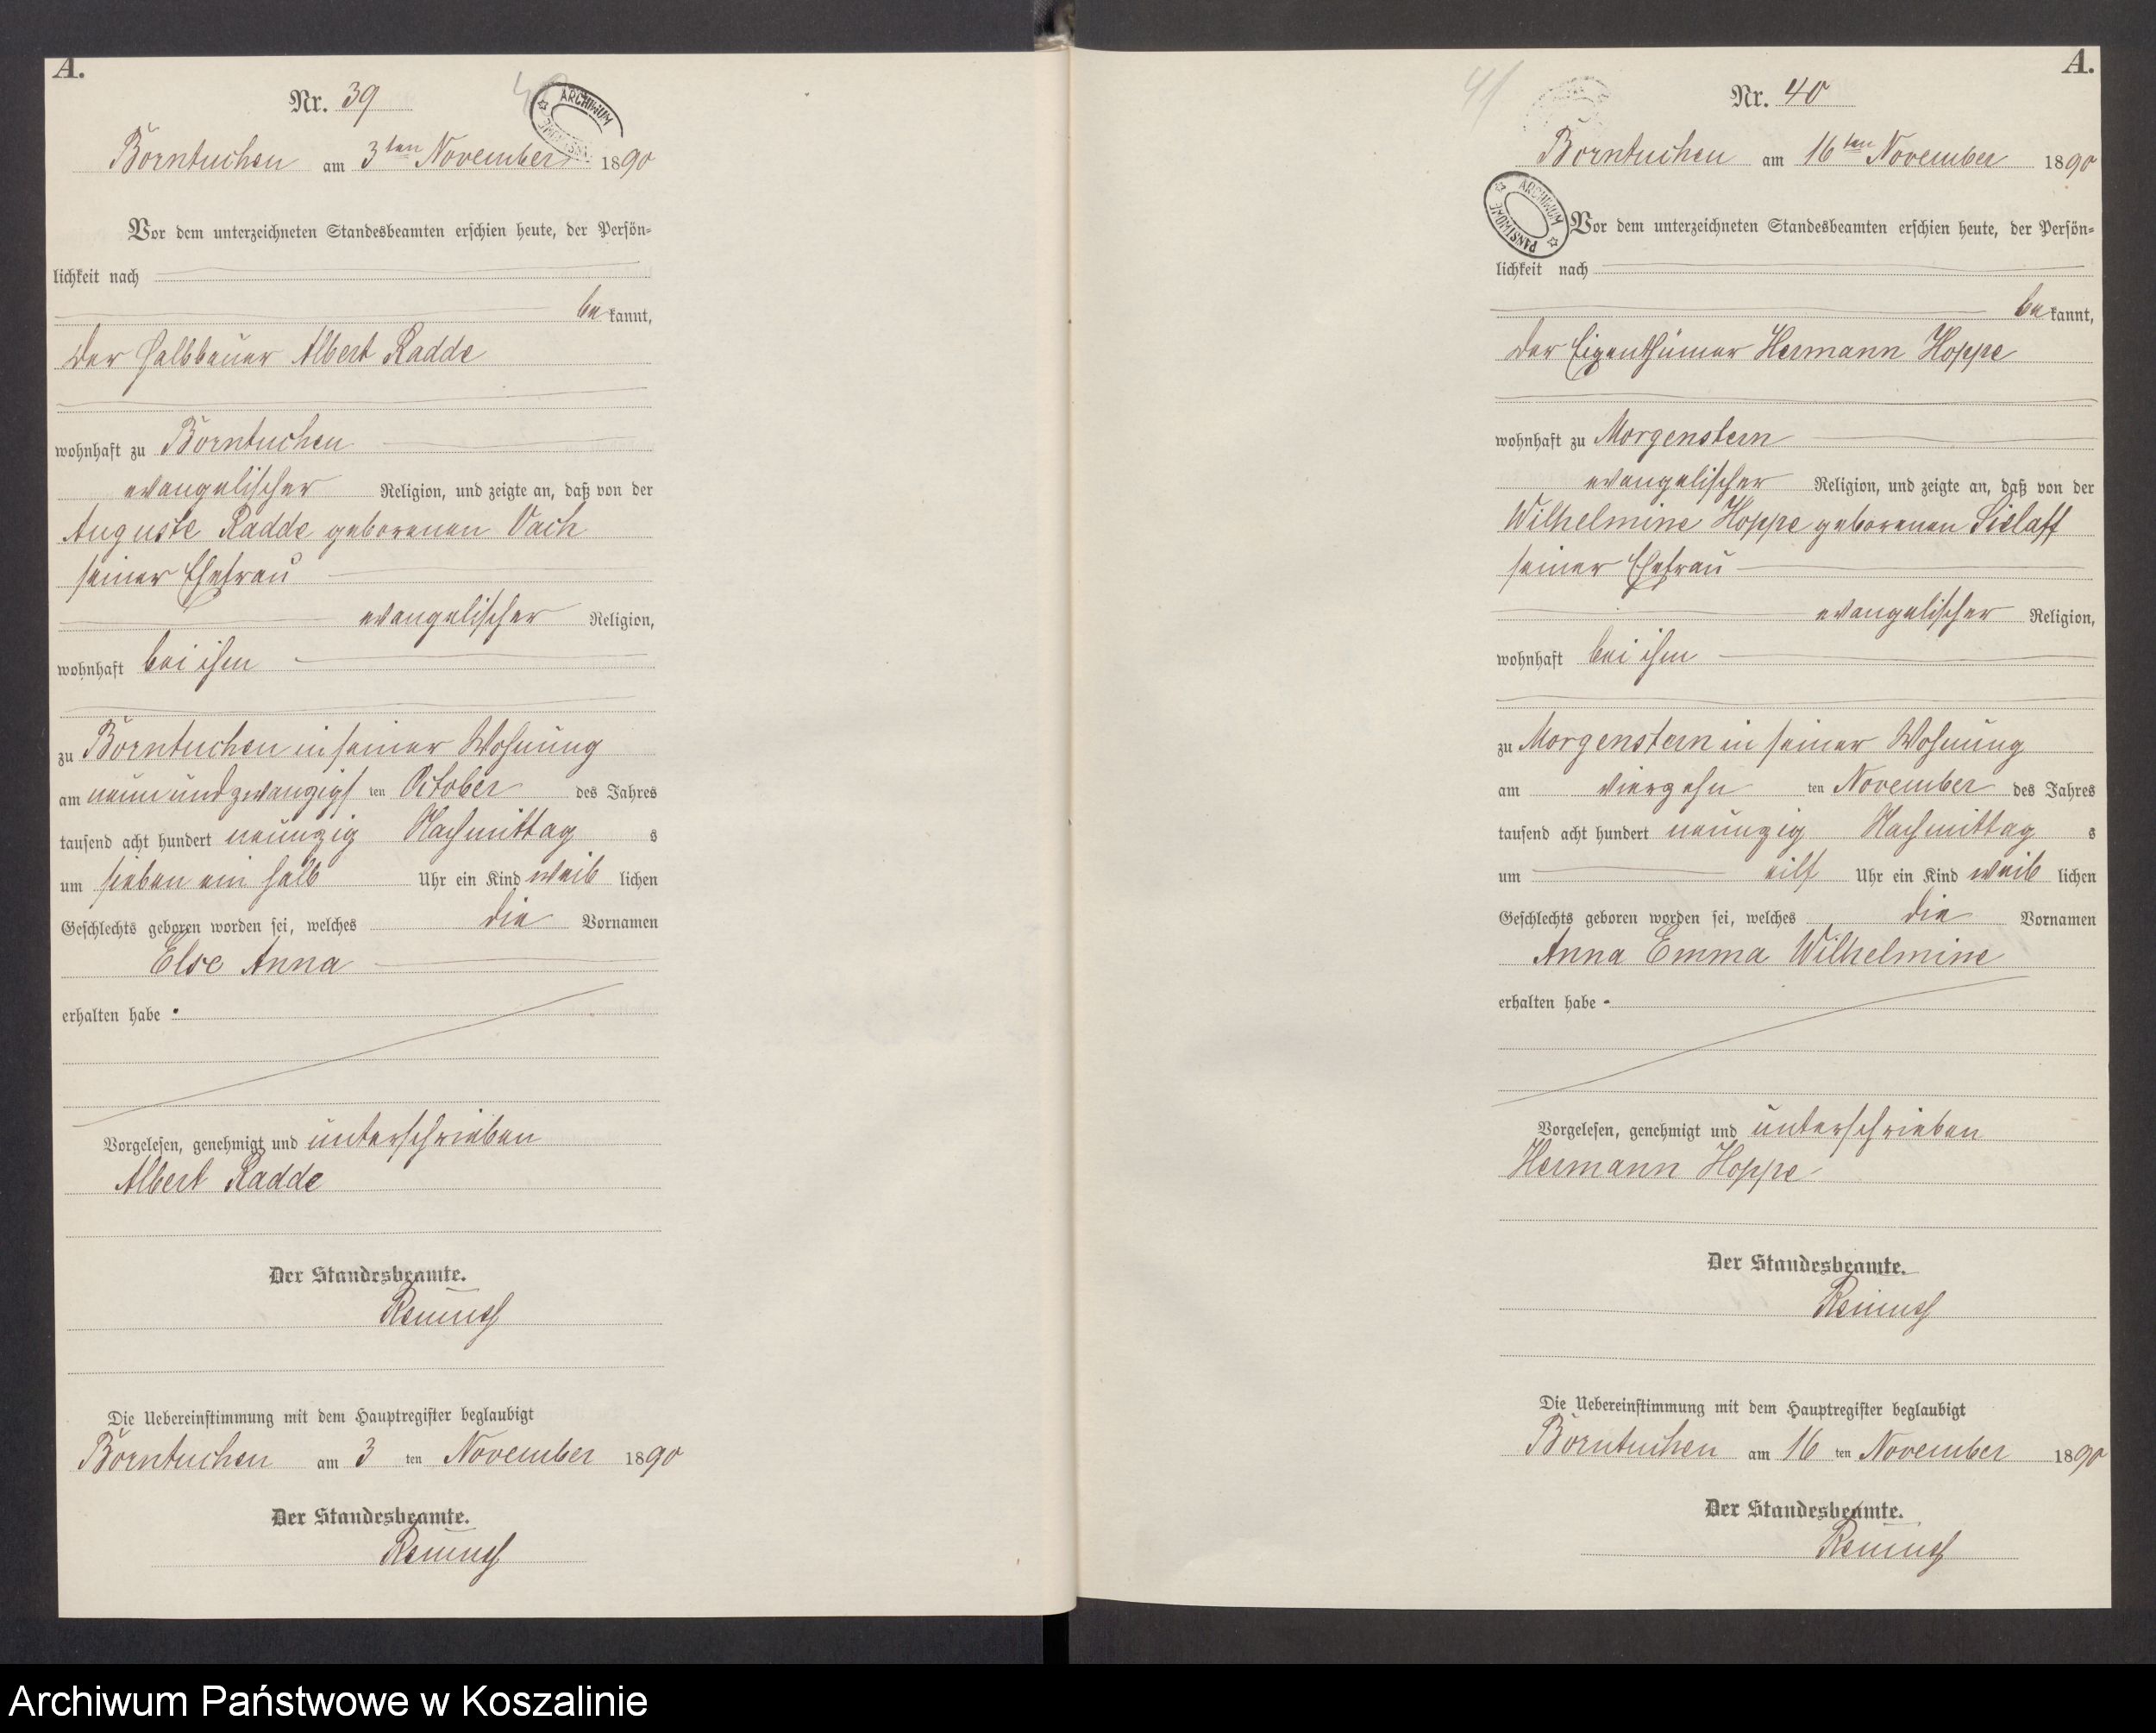 A.
Nr. 39
ARCHIWUM
Borntuchen am 3ten November 1890
Vor dem unterzeichneten Standesbeamten erschien heute, der Persön-
lichkeit nach
be kannt,
der Halbbauer Albert Radde
wohnhaft zu Borntuchen
evangelischer Religion, und zeigte an, daß von der
Auguste Radde geborenen Vach
seiner Ehefrau
evangelischer Religion,
wohnhaft bei ihm
zu Borntuchen in seiner Wohnung
am neun und zwanzigs ten October des Jahres
tausend acht hundert neunzig Nachmittag s
um sieben ein halb Uhr ein Kind weib lichen
Geschlechts geboren worden sei, welches die Vornamen
Else Anna
erhalten habe.
Vorgelesen, genehmigt und unterschrieben
Albert Radde
Der Standesbeamte.
Die Uebereinstimmung mit dem Hauptregister beglaubigt
Borntuchen am 3 ten November 1890
Der Standesbeamte.
A.
41
Nr. 40
Borntuchen am 16ten November 1890
ARCHIWUM PAŃSTWOWE
Vor dem unterzeichneten Standesbeamten erschien heute, der Persön-
lichkeit nach
be kannt,
der Eigenthümer Hermann Hoppe
wohnhaft zu Morgenstern
evangelischer Religion, und zeigte an, daß von der
Wilhelmine Hoppe geborenen Sielaff
seiner Ehefrau
evangelischer Religion,
wohnhaft bei ihm
zu Morgenstern in seiner Wohnung
am vierzehn ten November des Jahres
tausend acht hundert neunzig Nachmittag s
um eilf Uhr ein Kind weib lichen
Geschlechts geboren worden sei, welches die Vornamen
Anna Emma Wilhelmine
erhalten habe.
Vorgelesen, genehmigt und unterschrieben
Hermann Hoppe
Der Standesbeamte.
Die Uebereinstimmung mit dem Hauptregister beglaubigt
Borntuchen am 16 ten November 1890
Der Standesbeamte.
Archiwum Państwowe w Koszalinie